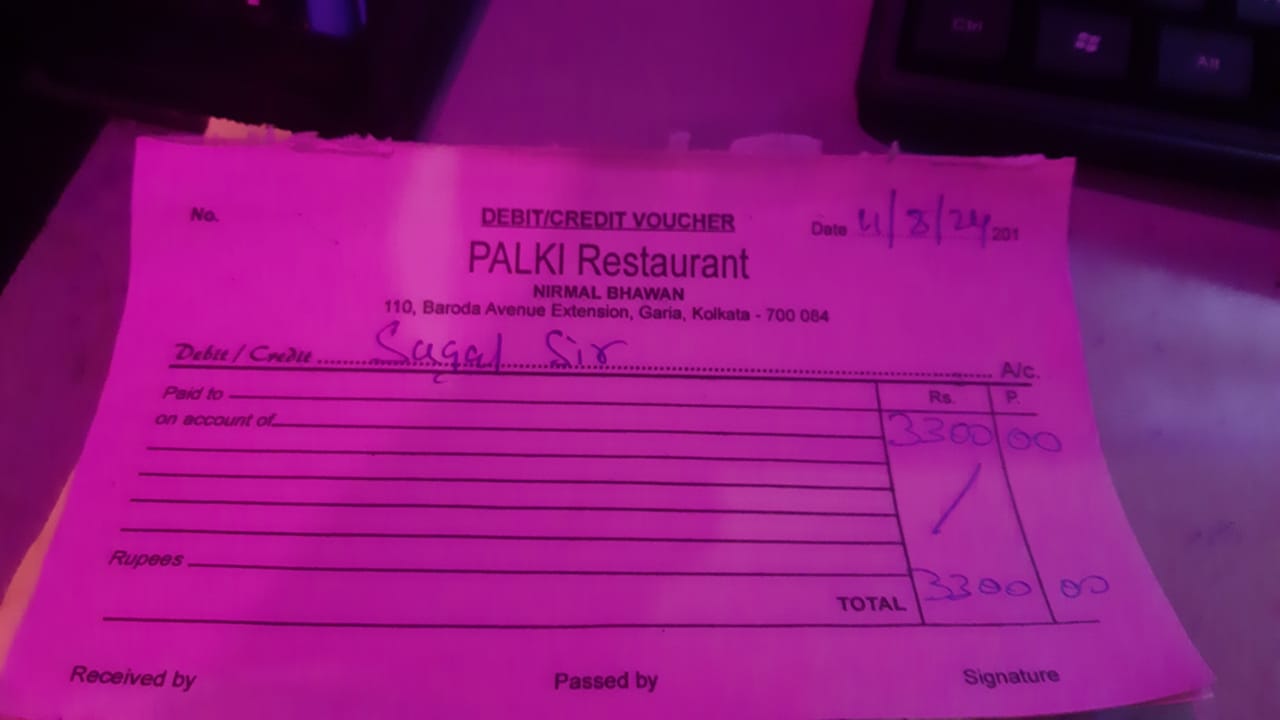 Ctrl
Alt
No.
DEBIT/CREDIT VOUCHER
Date 4/8/24 201
PALKI Restaurant
NIRMAL BHAWAN
110, Baroda Avenue Extension, Garia, Kolkata - 700 084
Debit / Credit Sagar Sir A/c.
Paid to Rs. P.
on account of 3300 00
Rupees
TOTAL 3300 00
Received by Passed by Signature